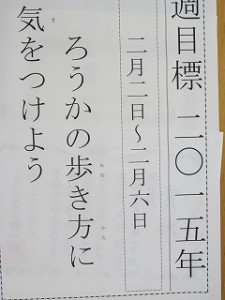 週目標 二〇一五年
二月二日～二月六日
ろうかの歩き方に
気をつけよう